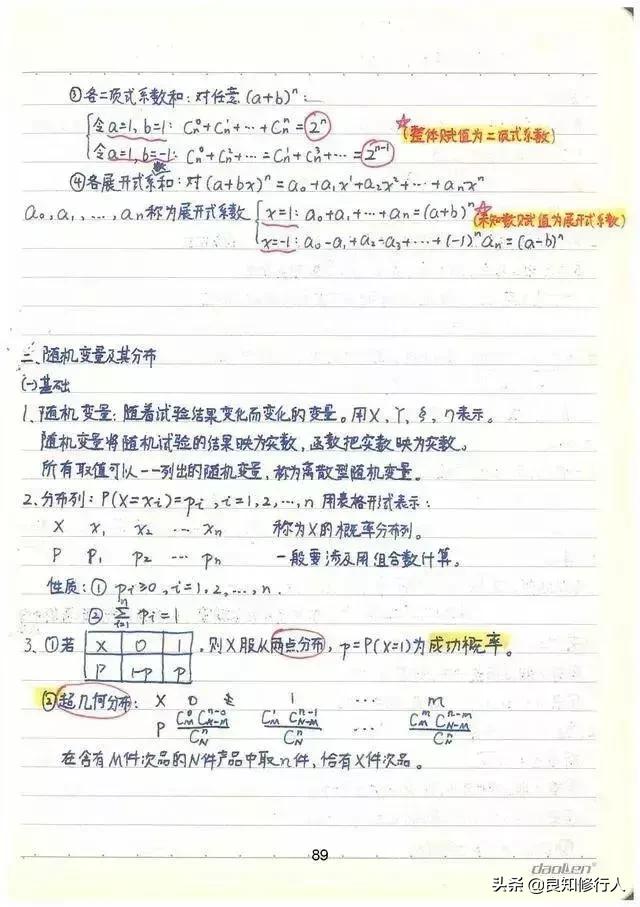 ③各二项式系数和：对任意(a+b)ⁿ：
令a=1,b=1: Cn⁰+Cn¹+…+Cnⁿ=2ⁿ
(整体赋值为二项式系数)
令a=1,b=-1: Cn⁰+Cn²+…=Cn¹+Cn³+…=2ⁿ⁻¹
④各展开式系数和：对(a+bx)ⁿ=a₀+a₁x¹+a₂x²+…+aₙxⁿ
a₀,a₁,…,aₙ称为展开式系数 x=1: a₀+a₁+…+aₙ=(a+b)ⁿ (未知数赋值为展开式系数)
x=-1: a₀-a₁+a₂-a₃+…+(-1)ⁿaₙ=(a-b)ⁿ
二、随机变量及其分布
(一)基础
1、随机变量：随着试验结果变化而变化的变量。用X,Y,ξ,η表示。
随机变量将随机试验的结果映为实数，函数把实数映为实数。
所有取值可以一一列出的随机变量，称为离散型随机变量。
2.分布列：P(X=xi)=pi,i=1,2,…,n 用表格形式表示：
X x₁ x₂ … xn 称为X的概率分布列。
P P₁ p₂ … pn 一般要涉及用组合数计算。
性质：① pi≥0,i=1,2,…,n.
② ∑ⁿᵢ₌₁ pi=1
3.①若 X 0 1 ，则X服从两点分布，p=P(X=1)为成功概率。
P 1-p p
②超几何分布： X 0 1 … m
P C_M⁰C_{N-M}^{n-0}/C_Nⁿ C_M¹C_{N-M}^{n-1}/C_Nⁿ … C_M^mC_{N-M}^{n-m}/C_Nⁿ
在含有M件次品的N件产品中取n件，恰有X件次品。
89
daolen®
头条@良知修行人